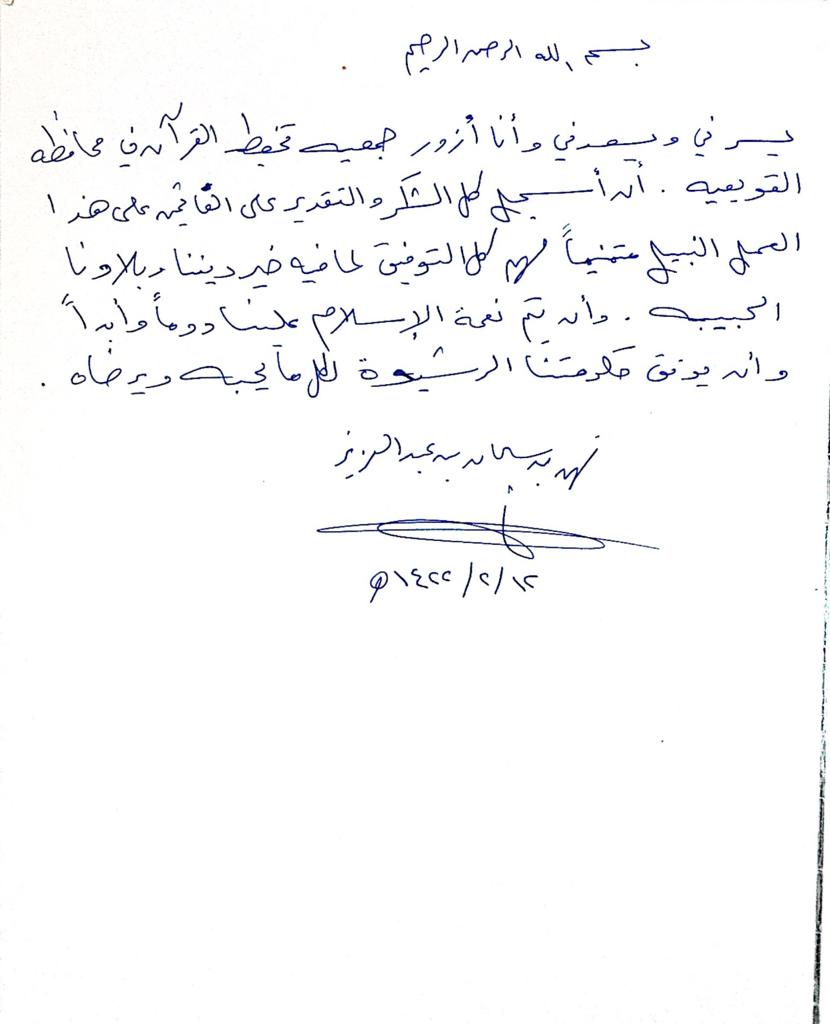 بسم الله الرحمن الرحيم
يسرني ويسعدني وأنا أزور جمعيه تحفيظ القرآن في محافظه
القويعيه . أن أسجل كل الشكر والتقدير على القائمين على هذا
العمل النبيل متمنياً لهم كل التوفيق لما فيه خير ديننا وبلادنا
الحبيبه . وأن تتم نعمة الإسلام علينا دوماً وأبداً
وأن يوفق حكومتنا الرشيدة لكل ما يحبه ويرضاه .
فهد بن سلمان بن عبدالعزيز
١٤٢٢/٢/١٢هـ